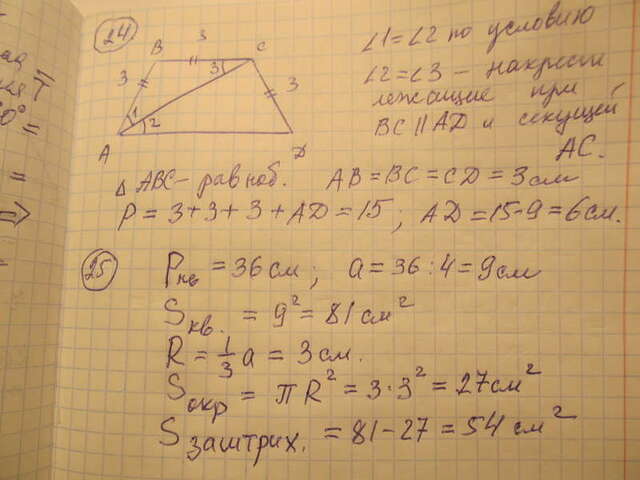 24
3
B
C
3
3
3
1
2
A
D
∠1=∠2 по условию
∠2=∠3 – накрест
лежащие при
BC || AD и секущей
AC.
△ ABC – равноб. AB = BC = CD = 3 см
P = 3 + 3 + 3 + AD = 15; AD = 15 - 9 = 6 см.
25
Pкв = 36 см; a = 36 : 4 = 9 см
Sкв. = 9² = 81 см²
R = 1/3 a = 3 см.
Sокр = πR² = 3 · 3² = 27 см²
Sзаштрих. = 81 – 27 = 54 см²
0° =
=
=>